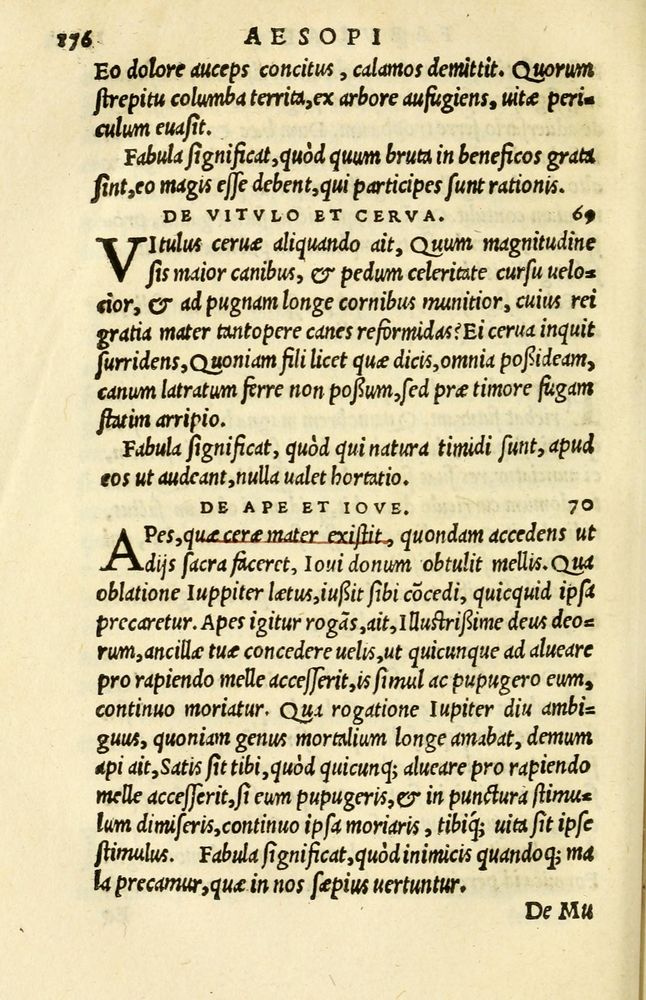 176 AESOPI
Eo dolore auceps concitus, calamos demittit. Quorum
strepitu columba territa, ex arbore aufugiens, uitæ peri=
culum euasit.
Fabula significat, quòd quum bruta in beneficos grata
sint, eo magis esse debent, qui participes sunt rationis.
DE VITVLO ET CERVA. 69
VItulus ceruæ aliquando ait, Quum magnitudine
sis maior canibus, & pedum celeritate cursu uelo=
cior, & ad pugnam longe cornibus munitior, cuius rei
gratia mater tantopere canes reformidas? Ei cerua inquit
surridens, Quoniam fili licet quæ dicis, omnia poßideam,
canum latratum ferre non poßum, sed præ timore fugam
statim arripio.
Fabula significat, quòd qui natura timidi sunt, apud
eos ut audeant, nulla ualet hortatio.
DE APE ET IOVE. 70
APes, quæ ceræ mater existit, quondam accedens ut
dijs sacra faceret, Ioui donum obtulit mellis. Qua
oblatione Iuppiter lætus, iußit sibi cōcedi, quicquid ipsa
precaretur. Apes igitur rogãs, ait, Illustrißime deus deo=
rum, ancillæ tuæ concedere uelis, ut quicunque ad alueare
pro rapiendo melle accesserit, is simul ac pupugero eum,
continuo moriatur. Qua rogatione Iupiter diu ambi=
guus, quoniam genus mortalium longe amabat, demum
api ait, Satis sit tibi, quòd quicunq; alueare pro rapiendo
melle accesserit, si eum pupugeris, & in punctura stimu=
lum dimiseris, continuo ipsa moriaris, tibiq́; uita sit ipse
stimulus. Fabula significat, quòd inimicis quandoq; ma
la precamur, quæ in nos sæpius uertuntur.
De Mu